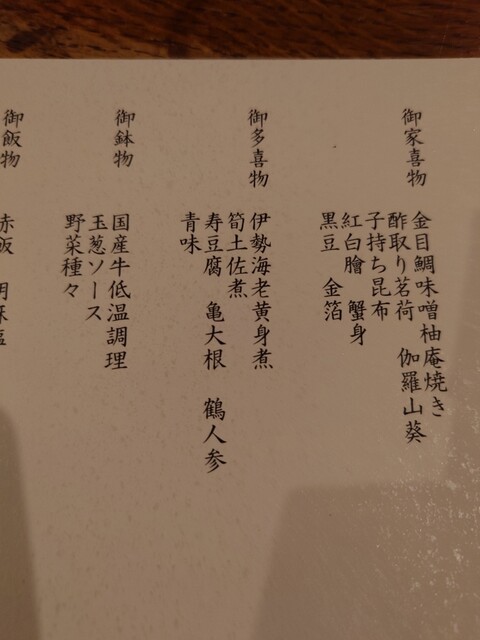 御家喜物
金目鯛味噌柚庵焼き
酢取り茗荷　伽羅山葵
子持ち昆布
紅白膾　蟹身
黒豆　金箔
御多喜物
伊勢海老黄身煮
筍土佐煮
寿豆腐　亀大根　鶴人参
青味
御鉢物
国産牛低温調理
玉葱ソース
野菜種々
御飯物
赤飯　胡麻塩